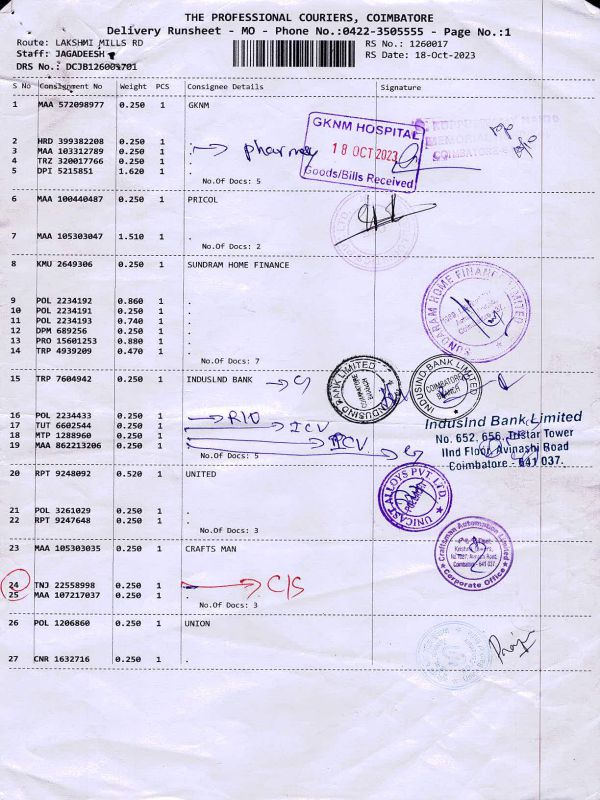 THE PROFESSIONAL COURIERS, COIMBATORE
Delivery Runsheet - MO - Phone No.:0422-3505555 - Page No.:1
Route: LAKSHMI MILLS RD
RS No.: 1260017
Staff: JAGADEESH
RS Date: 18-Oct-2023
DRS No.: DCJB126001701
S No Consignment No Weight PCS Consignee Details Signature
1 MAA 572098977 0.250 1 GKNM
GKNM HOSPITAL
18 OCT 2023
Goods/Bills Received
2 HRD 399382208 0.250 1 .
3 MAA 103312789 0.250 1 . pharmacy
4 TRZ 320017766 0.250 1 .
5 DPI 5215851 1.620 1 .
No.Of Docs: 5
6 MAA 100440487 0.250 1 PRICOL
7 MAA 105303047 1.510 1 .
No.Of Docs: 2
8 KMU 2649306 0.250 1 SUNDRAM HOME FINANCE
SUNDARAM HOME FINANCE LIMITED
9 POL 2234192 0.860 1 .
10 POL 2234191 0.250 1 .
11 POL 2234193 0.740 1 .
12 DPM 689256 0.250 1 .
13 PRO 15601253 0.880 1 .
14 TRP 4939209 0.470 1 .
No.Of Docs: 7
15 TRP 7604942 0.250 1 INDUSLND BANK
INDUSIND BANK LIMITED COIMBATORE BRANCH
INDUSIND BANK LIMITED COIMBATORE BRANCH
16 POL 2234433 0.250 1 .
17 TUT 6602544 0.250 1 . ICV
18 MTP 1288960 0.250 1 . ICV
19 MAA 862213206 0.250 1 .
No.Of Docs: 5
IndusInd Bank Limited
No. 652, 656, Tristar Tower
IInd Floor, Avinashi Road
Coimbatore - 641 037.
20 RPT 9248092 0.520 1 UNITED
UNICAST ALLOYS PVT LTD.
21 POL 3261029 0.250 1 .
22 RPT 9247648 0.250 1 .
No.Of Docs: 3
23 MAA 105303035 0.250 1 CRAFTS MAN
Craftsman Automation Limited
Coimbatore - 641 037.
Corporate Office
24 TNJ 22558998 0.250 1 . C/S
25 MAA 107217037 0.250 1 .
No.Of Docs: 3
26 POL 1206860 0.250 1 UNION
27 CNR 1632716 0.250 1 .